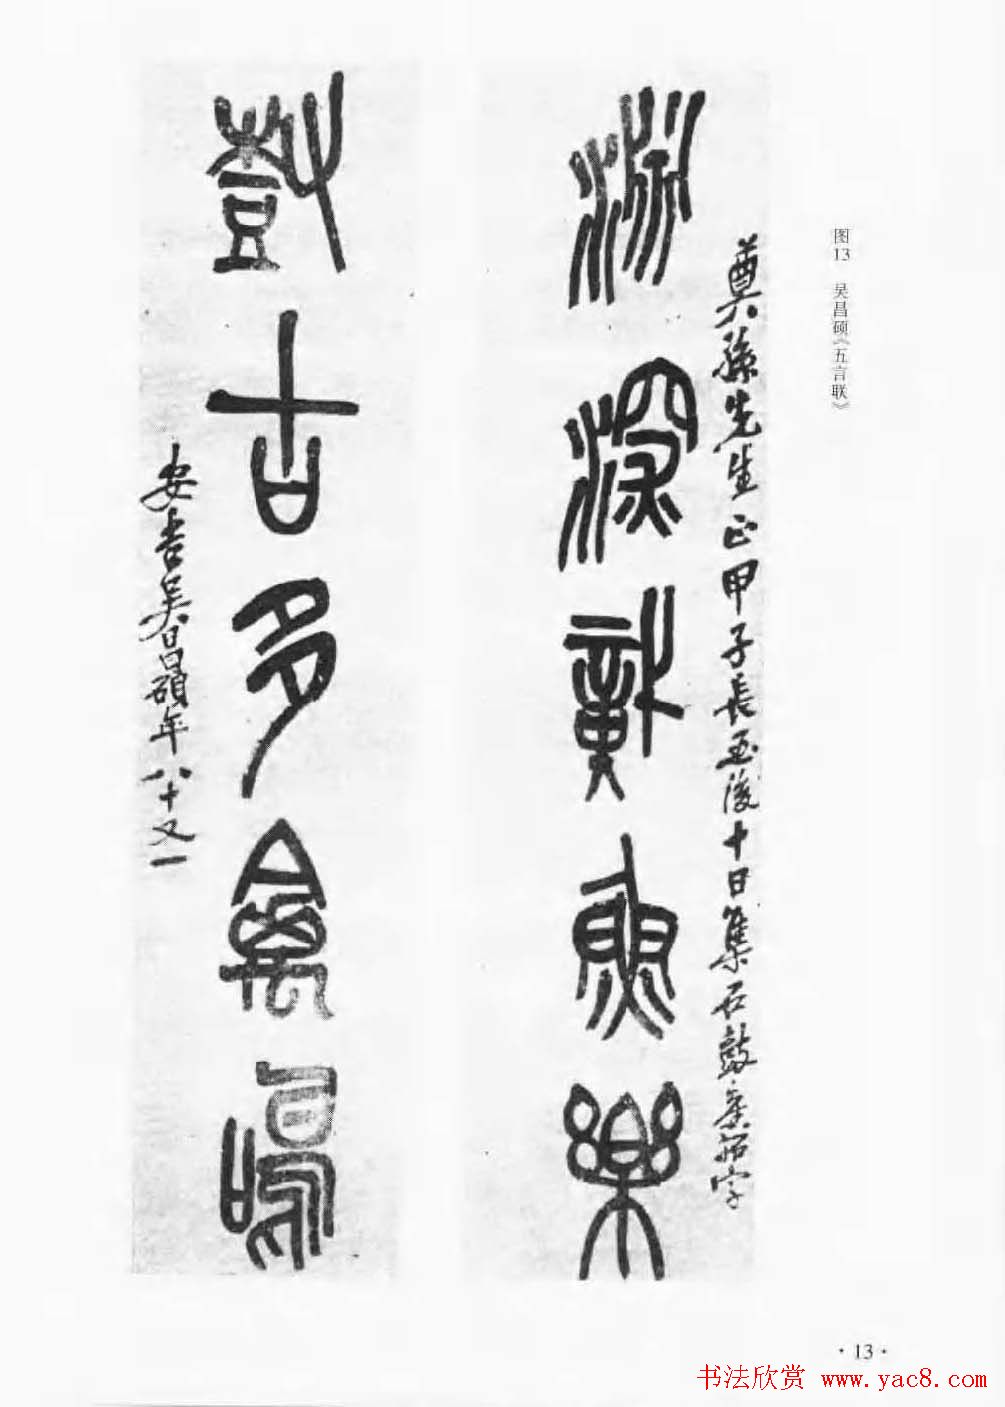 图13 吴昌硕《五言联》
奠孫先生正甲子長至後十日集石鼓拓字
淵深識魚樂
樹古多禽鳴
安吉吳昌碩年八十又一
·13·
书法欣赏 www.yac8.com